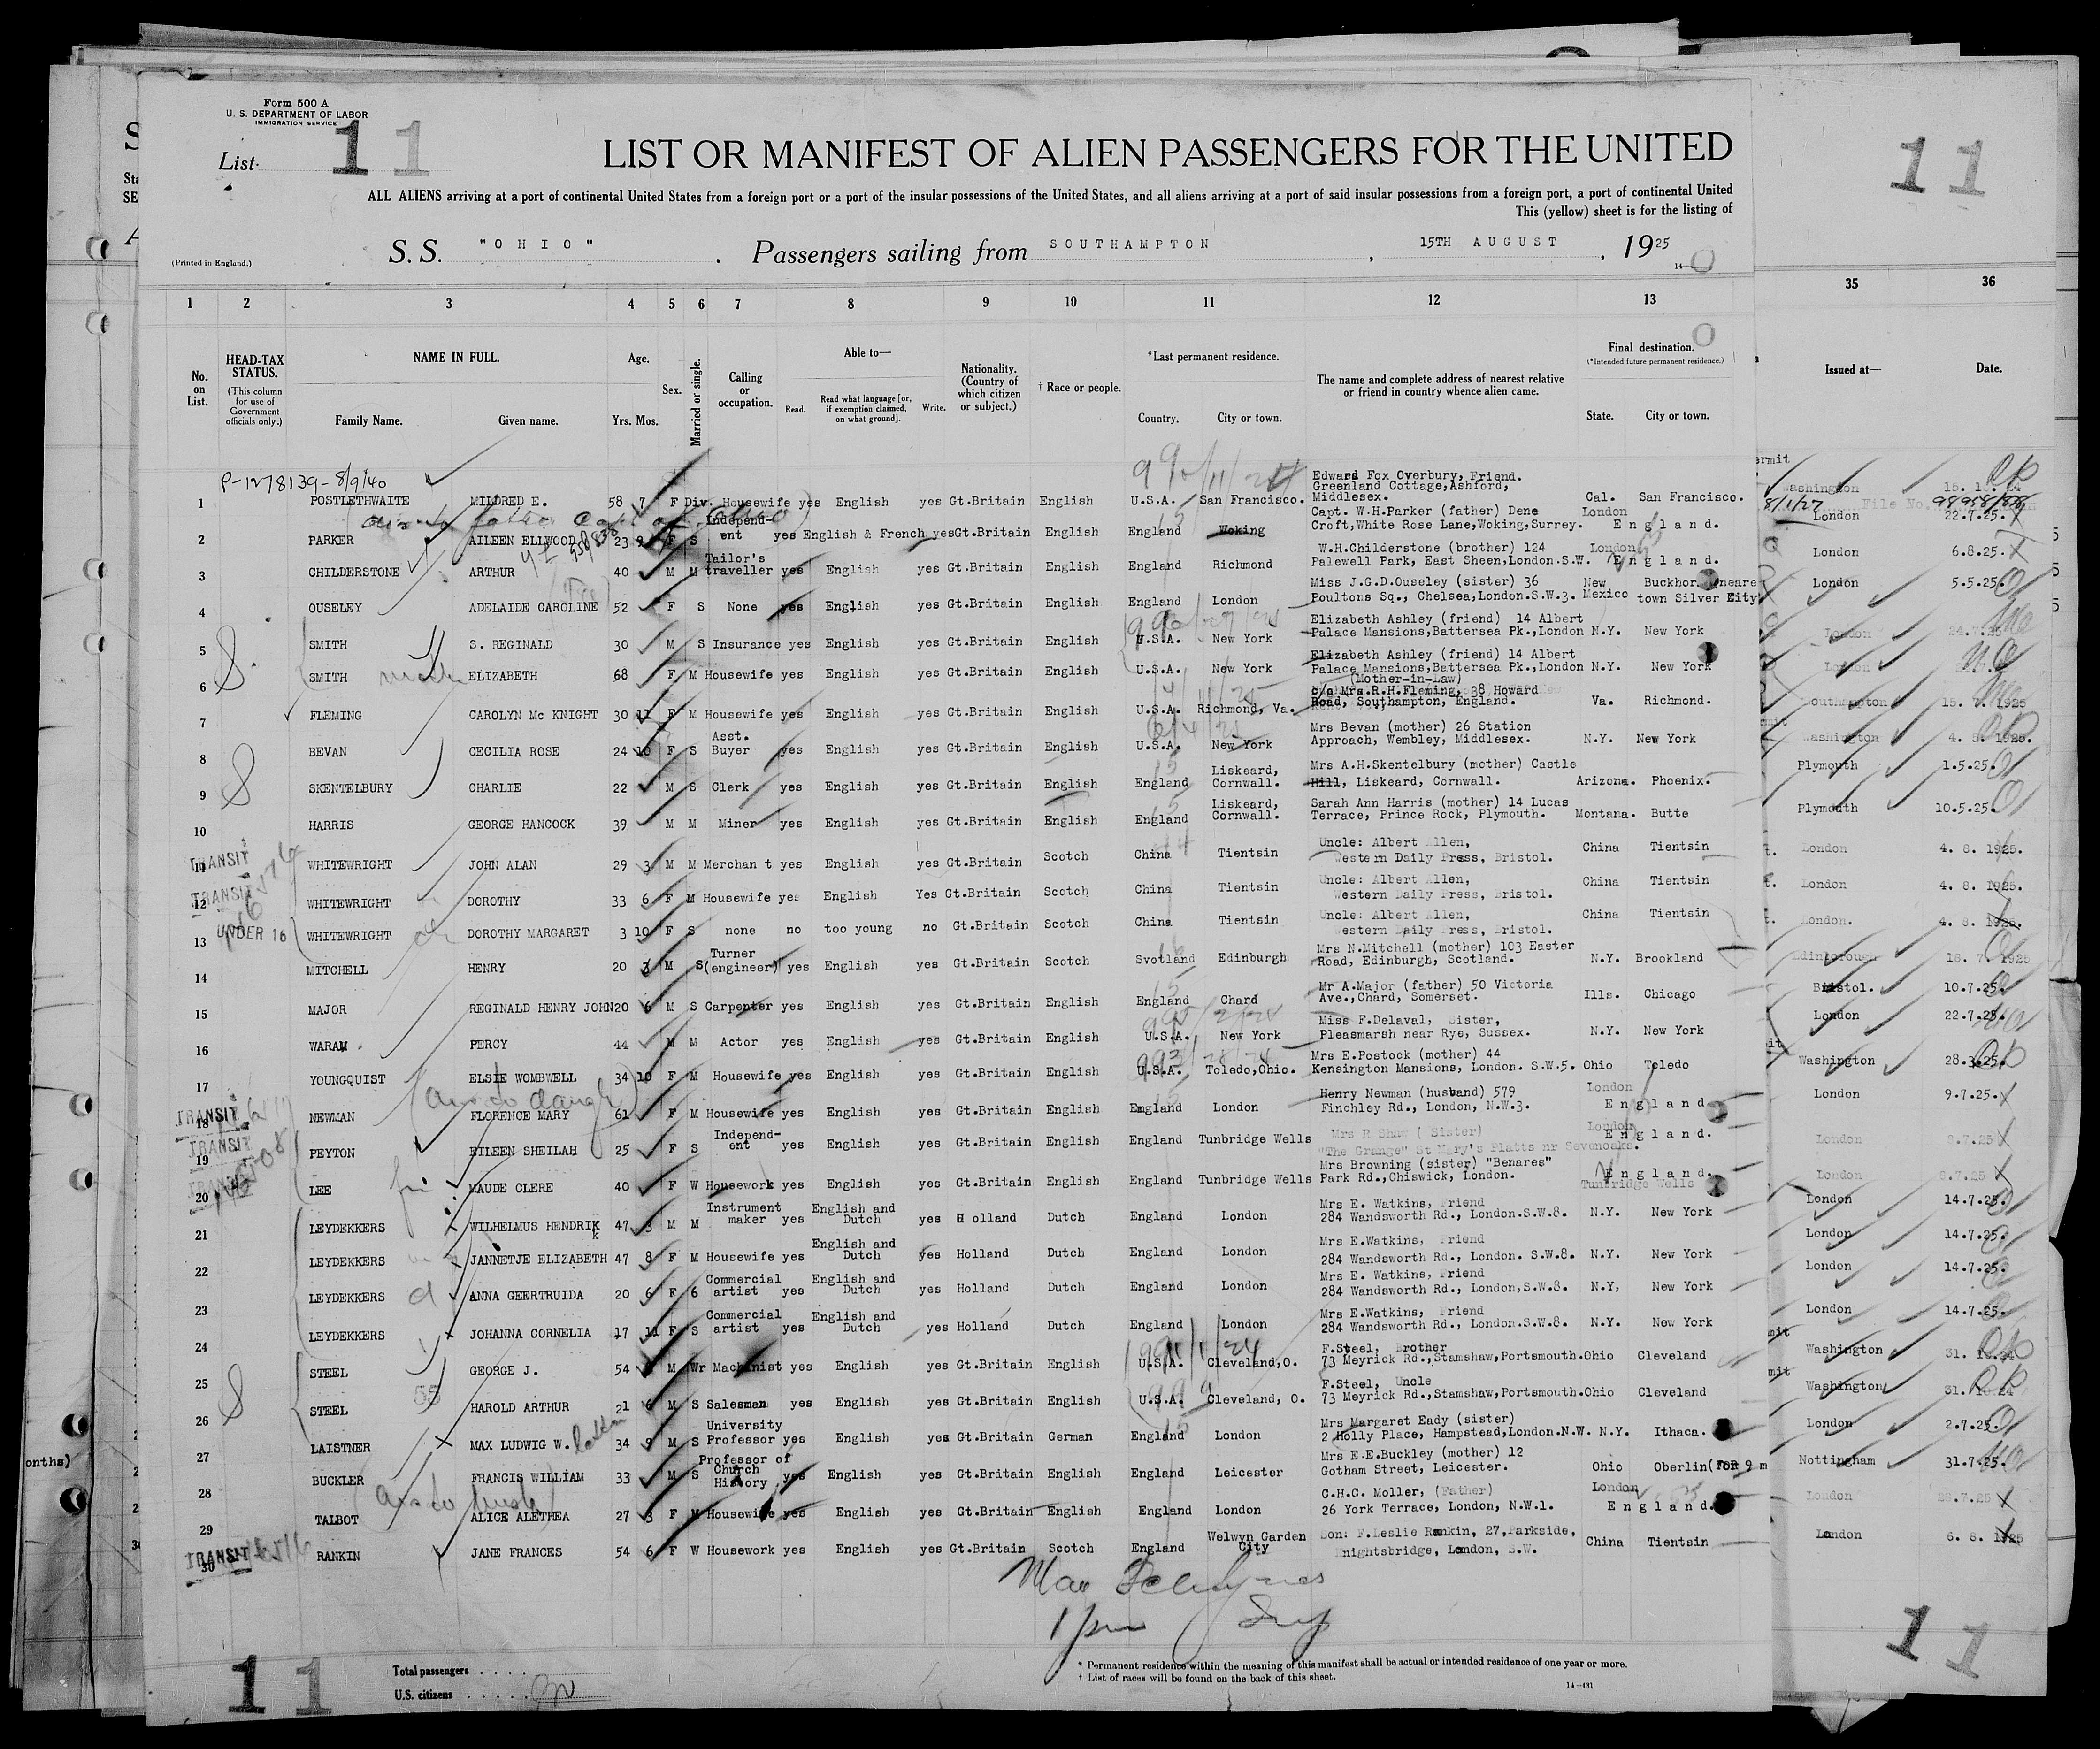 Form 500 A
U. S. DEPARTMENT OF LABOR
IMMIGRATION SERVICE
List 11
LIST OR MANIFEST OF ALIEN PASSENGERS FOR THE UNITED
11
ALL ALIENS arriving at a port of continental United States from a foreign port or a port of the insular possessions of the United States, and all aliens arriving at a port of said insular possessions from a foreign port, a port of continental United
This (yellow) sheet is for the listing of
S. S. "OHIO". Passengers sailing from SOUTHAMPTON, 15TH AUGUST, 1925
(Printed in England.)
1 2 3 4 5 6 7 8 9 10 11 12 13 35 36
No. on List.
HEAD-TAX STATUS.
(This column for use of Government officials only.)
NAME IN FULL.
Family Name. Given name.
Age.
Yrs. Mos.
Sex.
Married or single.
Calling or occupation.
Able to—
Read. Read what language [or, if exemption claimed, on what ground]. Write.
Nationality. (Country of which citizen or subject.)
† Race or people.
*Last permanent residence.
Country. City or town.
The name and complete address of nearest relative or friend in country whence alien came.
Final destination.
(*Intended future permanent residence.)
State. City or town.
Issued at— Date.
P-1278139-8/9/40
1 POSTLETHWAITE MILDRED E. 58 7 F Div. Housewife yes English yes Gt.Britain English U.S.A. San Francisco. Edward Fox Overbury, Friend. Greenland Cottage,Ashford, Middlesex. Cal. San Francisco.
2 PARKER AILEEN ELLWOOD 23 9 F S Independ-ent yes English & French yes Gt.Britain English England Woking Capt. W.H.Parker (father) Dene Croft,White Rose Lane,Woking,Surrey. London England. London 22.7.25.
3 CHILDERSTONE ARTHUR 40 M M Tailor's traveller yes English yes Gt.Britain English England Richmond W.H.Childerstone (brother) 124 Palewell Park, East Sheen,London.S.W. London England. London 6.8.25.
4 OUSELEY ADELAIDE CAROLINE 52 F S None yes English yes Gt.Britain English England London Miss J.G.D.Ouseley (sister) 36 Poultons Sq., Chelsea,London.S.W.3. New Mexico town Silver City London 5.5.25.
5 SMITH S. REGINALD 30 M S Insurance yes English yes Gt.Britain English U.S.A. New York Elizabeth Ashley (friend) 14 Albert Palace Mansions,Battersea Pk.,London N.Y. New York London
6 SMITH ELIZABETH 68 F M Housewife yes English yes Gt.Britain English U.S.A. New York Elizabeth Ashley (friend) 14 Albert Palace Mansions,Battersea Pk.,London N.Y. New York
7 FLEMING CAROLYN Mc KNIGHT 30 11 F M Housewife yes English yes Gt.Britain English U.S.A. Richmond, Va. (Mother-in-Law) c/o Mrs.R.H.Fleming, 38 Howard Road, Southampton, England. Va. Richmond. Southampton
8 BEVAN CECILIA ROSE 24 10 F S Asst. Buyer yes English yes Gt.Britain English U.S.A. New York Mrs Bevan (mother) 26 Station Approach, Wembley, Middlesex. N.Y. New York Washington
9 SKENTELBURY CHARLIE 22 M S Clerk yes English yes Gt.Britain English England Liskeard, Cornwall. Mrs A.H.Skentelbury (mother) Castle Hill, Liskeard, Cornwall. Arizona. Phoenix. Plymouth 1.5.25.
10 HARRIS GEORGE HANCOCK 39 M M Miner yes English yes Gt.Britain English England Liskeard, Cornwall. Sarah Ann Harris (mother) 14 Lucas Terrace, Prince Rock, Plymouth. Montana. Butte Plymouth 10.5.25.
TRANSIT
11 WHITEWRIGHT JOHN ALAN 29 3 M M Merchan t yes English yes Gt.Britain Scotch China Tientsin Uncle: Albert Allen, Western Daily Press, Bristol. China Tientsin London 4. 8. 1925.
TRANSIT
12 WHITEWRIGHT DOROTHY 33 6 F M Housewife yes English Yes Gt.Britain Scotch China Tientsin Uncle: Albert Allen, Western Daily Press, Bristol. China Tientsin London 4. 8. 1925.
UNDER 16
13 WHITEWRIGHT DOROTHY MARGARET 3 10 F S none no too young no Gt.Britain Scotch China Tientsin Uncle: Albert Allen, Western Daily Press, Bristol. China Tientsin London. 4. 8. 1925.
14 MITCHELL HENRY 20 3 M S Turner (engineer) yes English yes Gt.Britain Scotch Svotland Edinburgh Mrs N.Mitchell (mother) 103 Easter Road, Edinburgh, Scotland. N.Y. Brookland Edinborough
15 MAJOR REGINALD HENRY JOHN 20 6 M S Carpenter yes English yes Gt.Britain English England Chard Mr A.Major (father) 50 Victoria Ave.,Chard, Somerset. Ills. Chicago Bristol. 10.7.25.
16 WARAM PERCY 44 M M Actor yes English yes Gt.Britain English U.S.A. New York Miss F.Delaval, Sister, Pleasmarsh near Rye, Sussex. N.Y. New York London 22.7.25.
17 YOUNGQUIST ELSIE WOMBWELL 34 10 F M Housewife yes English yes Gt.Britain English U.S.A. Toledo,Ohio. Mrs E.Postock (mother) 44 Kensington Mansions, London. S.W.5. Ohio Toledo Washington 28.3.25.
TRANSIT
18 NEWMAN FLORENCE MARY 61 F M Housewife yes English yes Gt.Britain English England London Henry Newman (husband) 579 Finchley Rd., London, N.W.3. London England London 9.7.25.
TRANSIT
19 PEYTON EILEEN SHEILAH 25 F S Independ-ent yes English yes Gt.Britain English England Tunbridge Wells Mrs R Shaw ( Sister) "The Grange" St Mary's Platts nr Sevenoaks. London England. London
TRANSIT
20 LEE MAUDE CLERE 40 F W Housework yes English yes Gt.Britain English England Tunbridge Wells Mrs Browning (sister) "Benares" Park Rd.,Chiswick, London. England. Tunbridge Wells London
21 LEYDEKKERS WILHELMUS HENDRIK 47 3 M M Instrument maker yes English and Dutch yes H olland Dutch England London Mrs E. Watkins, Friend 284 Wandsworth Rd., London.S.W.8. N.Y. New York London 14.7.25.
22 LEYDEKKERS JANNETJE ELIZABETH 47 8 F M Housewife yes English and Dutch yes Holland Dutch England London Mrs E.Watkins, Friend 284 Wandsworth Rd., London. S.W.8. N.Y. New York London 14.7.25.
23 LEYDEKKERS ANNA GEERTRUIDA 20 6 F 6 Commercial artist yes English and Dutch yes Holland Dutch England London Mrs E. Watkins, Friend 284 Wandsworth Rd., London,S.W.8. N.Y, New York London 14.7.25.
24 LEYDEKKERS JOHANNA CORNELIA 17 11 F S Commercial artist yes English and Dutch yes Holland Dutch England London Mrs E.Watkins, Friend 284 Wandsworth Rd., London.S.W.8. N.Y. New York London 14.7.25.
25 STEEL GEORGE J. 54 M Wr Machinist yes English yes Gt.Britain English U.S.A. Cleveland,O. F.Steel, Brother 73 Meyrick Rd.,Stamshaw,Portsmouth. Ohio Cleveland Washington
26 STEEL HAROLD ARTHUR 21 6 M S Salesman yes English yes Gt.Britain English U.S.A. Cleveland, O. F.Steel, Uncle 73 Meyrick Rd.,Stamshaw,Portsmouth. Ohio Cleveland Washington
27 LAISTNER MAX LUDWIG W. 34 9 M S University Professor yes English yes Gt.Britain German England London Mrs Margaret Eady (sister) 2 Holly Place, Hampstead,London.N.W. N.Y. Ithaca. London 2.7.25.
28 BUCKLER FRANCIS WILLIAM 33 M S Professor of Church History yes English yes Gt.Britain English England Leicester Mrs E.E.Buckley (mother) 12 Gotham Street, Leicester. Ohio Oberlin(FOR 9 m Nottingham 31.7.25.
29 TALBOT ALICE ALETHEA 27 3 F M Housewife yes English yes Gt.Britain English England London C.H.C. Moller, (Father) 26 York Terrace, London, N.W.1. London England. London
TRANSIT
30 RANKIN JANE FRANCES 54 6 F W Housework yes English yes Gt.Britain Scotch England Welwyn Garden City Son: F.Leslie Rankin, 27,Parkside, Knightsbridge, London, S.W. China Tientsin London 6. 8. 1925
11
Total passengers . . . .
U.S. citizens . . . . .
* Permanent residence within the meaning of this manifest shall be actual or intended residence of one year or more.
† List of races will be found on the back of this sheet.
14—431
11